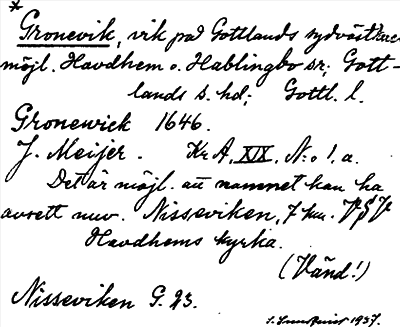 *
Gronevik, vik på Gottlands sydvästkust
möjl. Havdhem o. Hablingbo sr; Gott-
lands s. hd; Gottl. l.
Gronewick 1646.
J. Meijer. Kr A, XIX, N:o 1, a.
Det är möjl. att namnet kan ha
avsett nuv. Nisseviken, 7 km. VSV
Havdhems kyrka.
(Vänd!)
Nisseviken G. 23.
1937.